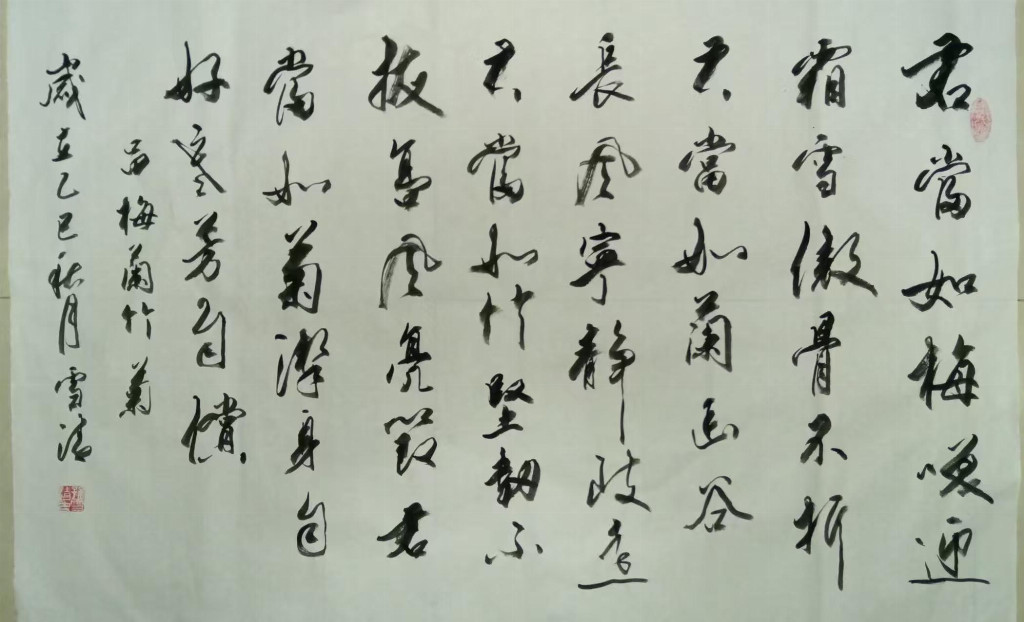 君當如梅咲迎
霜雪傲骨不折
君當如蘭幽谷
長風寧靜致遠
君當如竹堅韌不
拔高風亮節君
當如菊潔身自
好寒芳自
品梅蘭竹菊
歲在乙巳秋月雪清